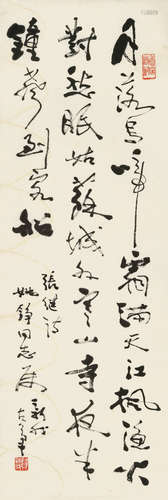 月落烏啼霜滿天江楓漁火
對愁眠姑蘇城外寒山寺夜半
鐘聲到客船
張繼詩
姚錚同志屬